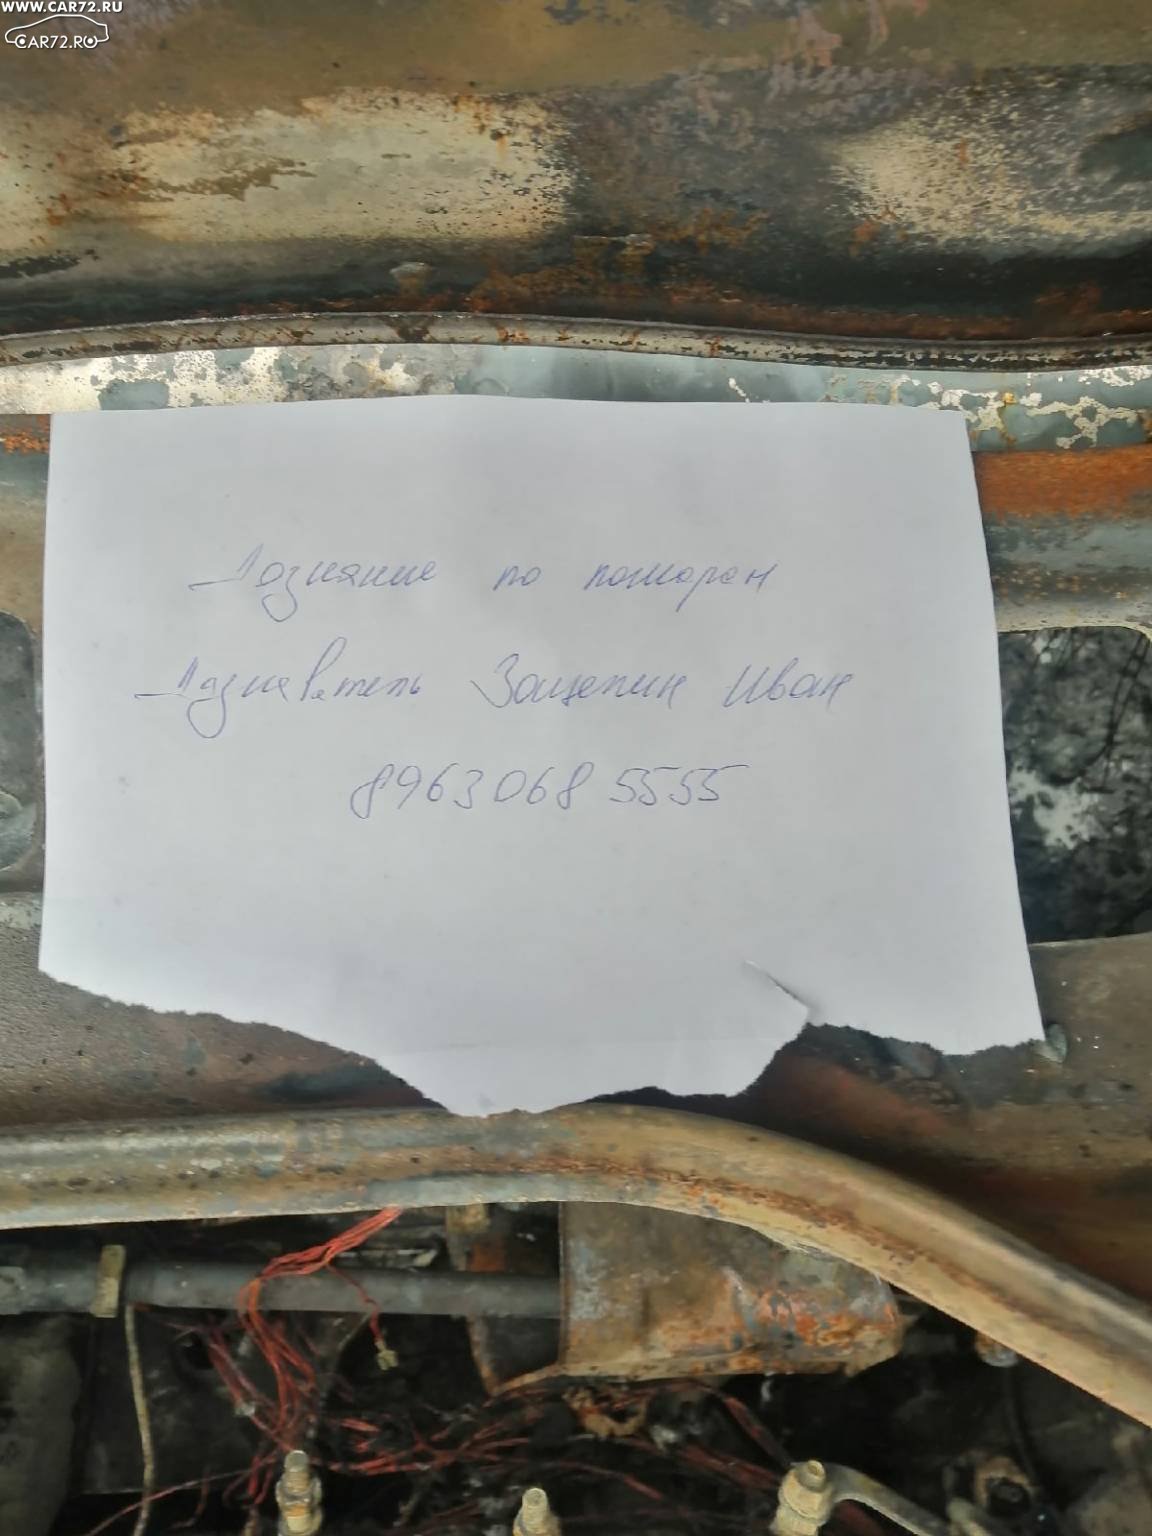 WWW.CAR72.RU
CAR72.RU
Дознание по пожарам
Дознаватель Защепин Иван
8963 068 5555